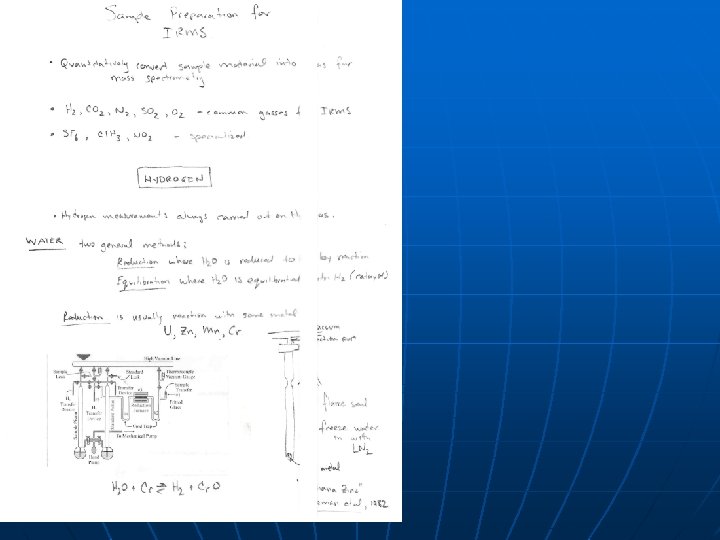 Sample Preparation for
IRMS
• Quantitatively convert sample material into as for
mass spectrometry
• H2, CO2, N2, SO2, O2 - common gasses f IRMS
• SF6, CH3, NO2 - specialized
HYDROGEN
• Hydrogen measurements always carried out on H as.
WATER two general methods:
Reduction where H2O is reduced to by reaction
Equilibration where H2O is equilibrated with H2 (catalyst)
Reduction is usually reaction with some metal
U, Zn, Mn, Cr
High Vacuum Line
Sample
Loop
Standard
Thermocouple
Vacuum Gauge
Sample
Transfer
Fritted
Glass
Reduction
Furnace
Transfer
Device
Sample Piston
To Mechanical Pump
H2O + Cr ⇌ H2 + CrO
flame seal
freeze water
in with
LN2
metal
ana Zinc"
eman et al, 1982